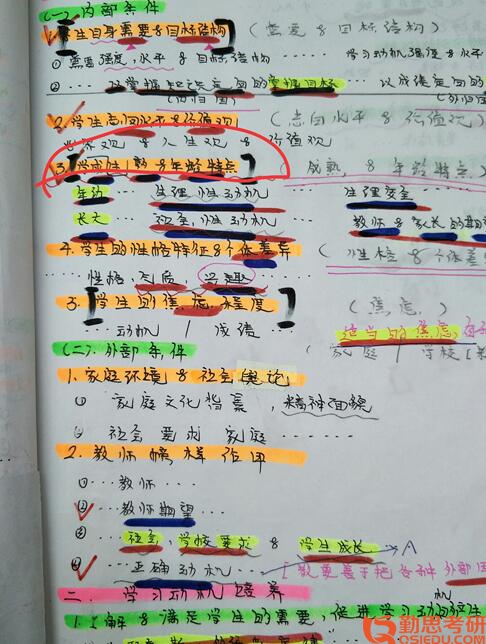 (一)内部条件
1.学生自身需要&目标结构 (需要&目标结构)
①需要强度,水平&目标结构…… 学习动机强度&水平
②……以掌握知识定向的掌握目标 以成绩定向的
(内归因) (外归因
2.学生志向水平&价值观 (志向水平&价值观)
世界观&人生观&价值观
3.学生成熟&年龄特点 成熟,&年龄特点)
年幼……生理性动机……生理安全
长大……社会性动机……教师&家长的期望
4.学生的性格特征&个体差异 (性格&个体差
性格、气质、兴趣
5.学生的焦虑程度 (焦虑)
……动机/成绩…… 适当的焦虑,
(二).外部条件 (家庭/学校
1.家庭环境&社会舆论
①家庭文化背景,精神面貌
②社会要求 家庭……
2.教师榜样作用
①……教师……
②……教师期望……
③……社会,学校要求&学生成长→A
④……正确动机…… [教要善于把各种外部
二、学习动机培养 机
1.了解&满足学生的需要,促进学习动机的产生
勤思考研
QISIEDU.COM